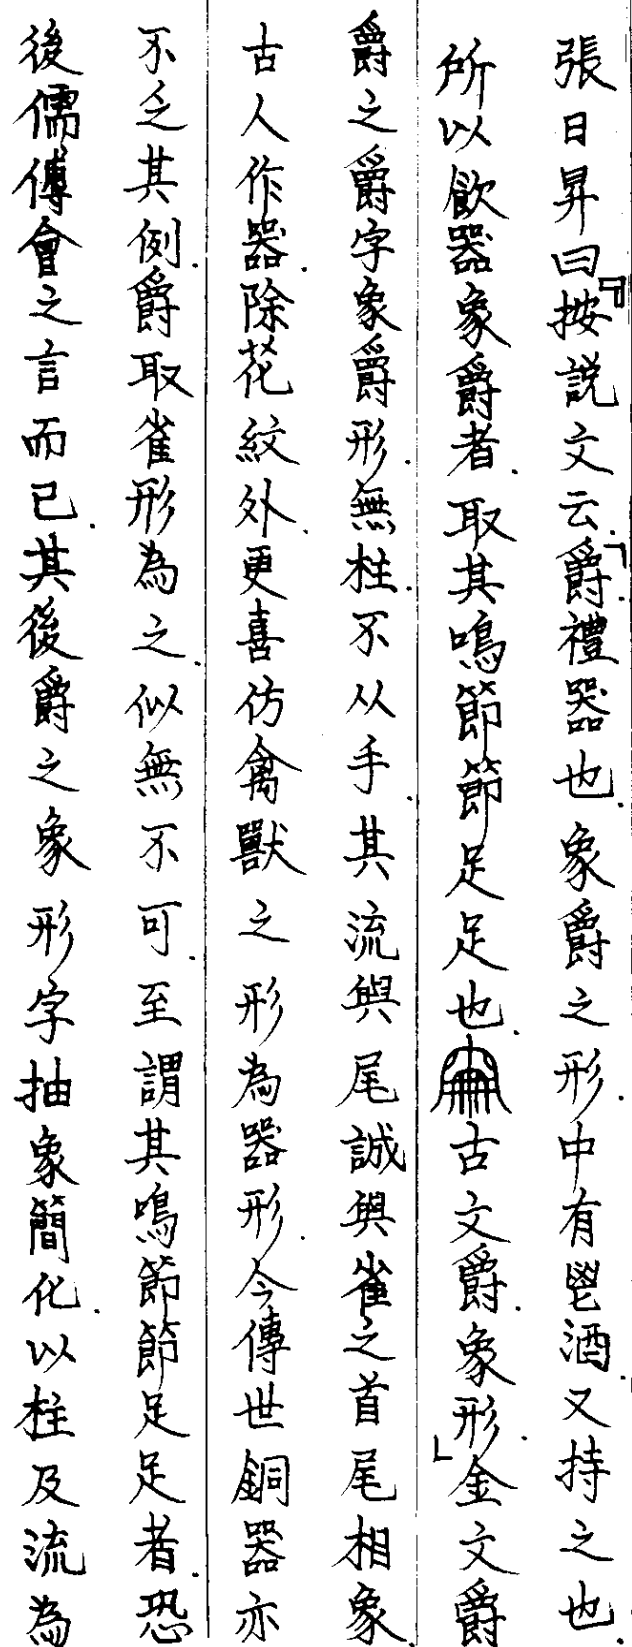 張日昇曰按『說文云.「爵.禮器也.象爵之形.中有鬯酒.又持之也.
所以飲器象爵者.取其鳴節節足足也.古文爵.象形.」金文爵
爵之爵字象爵形.無柱.不从手.其流與尾誠與雀之首尾相象.
古人作器.除花紋外.更喜仿禽獸之形為器形.今傳世銅器亦
不乏其例爵取雀形為之.似無不可.至謂其鳴節節足足者.恐
後儒傅會之言而已.其後爵之象形字抽象簡化.以柱及流為